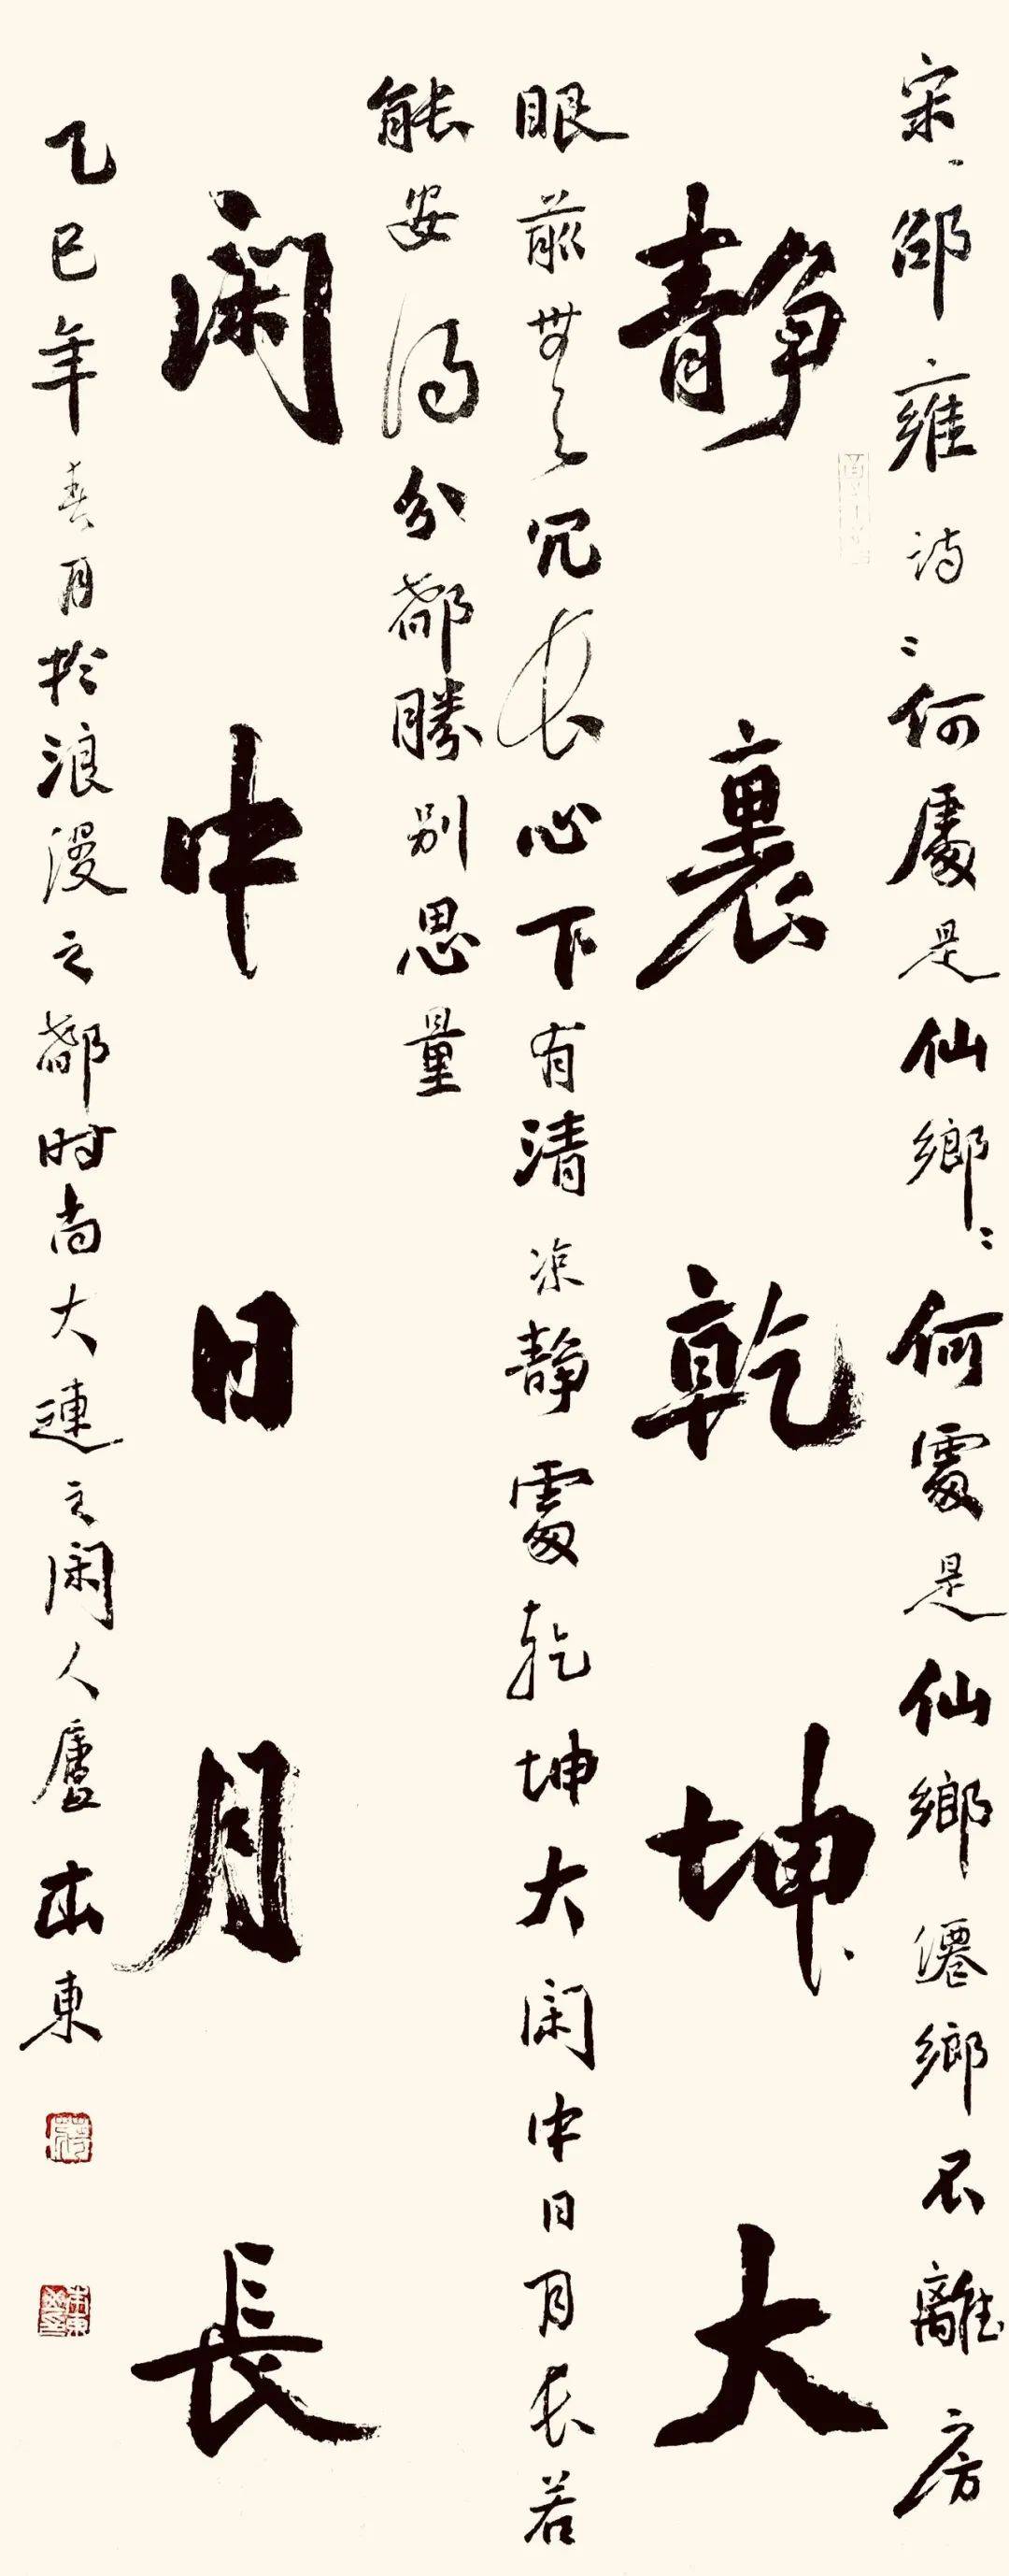 宋、邵雍诗:何處是仙鄉:何處是仙鄉僊鄉不離房
静裏乾坤大
眼前無冗長心下有清凉静處乾坤大闲中日月長若
能安得分都勝别思量
闲中日月長
乙巳年春月於浪漫之都时尚大連之闲人廬東